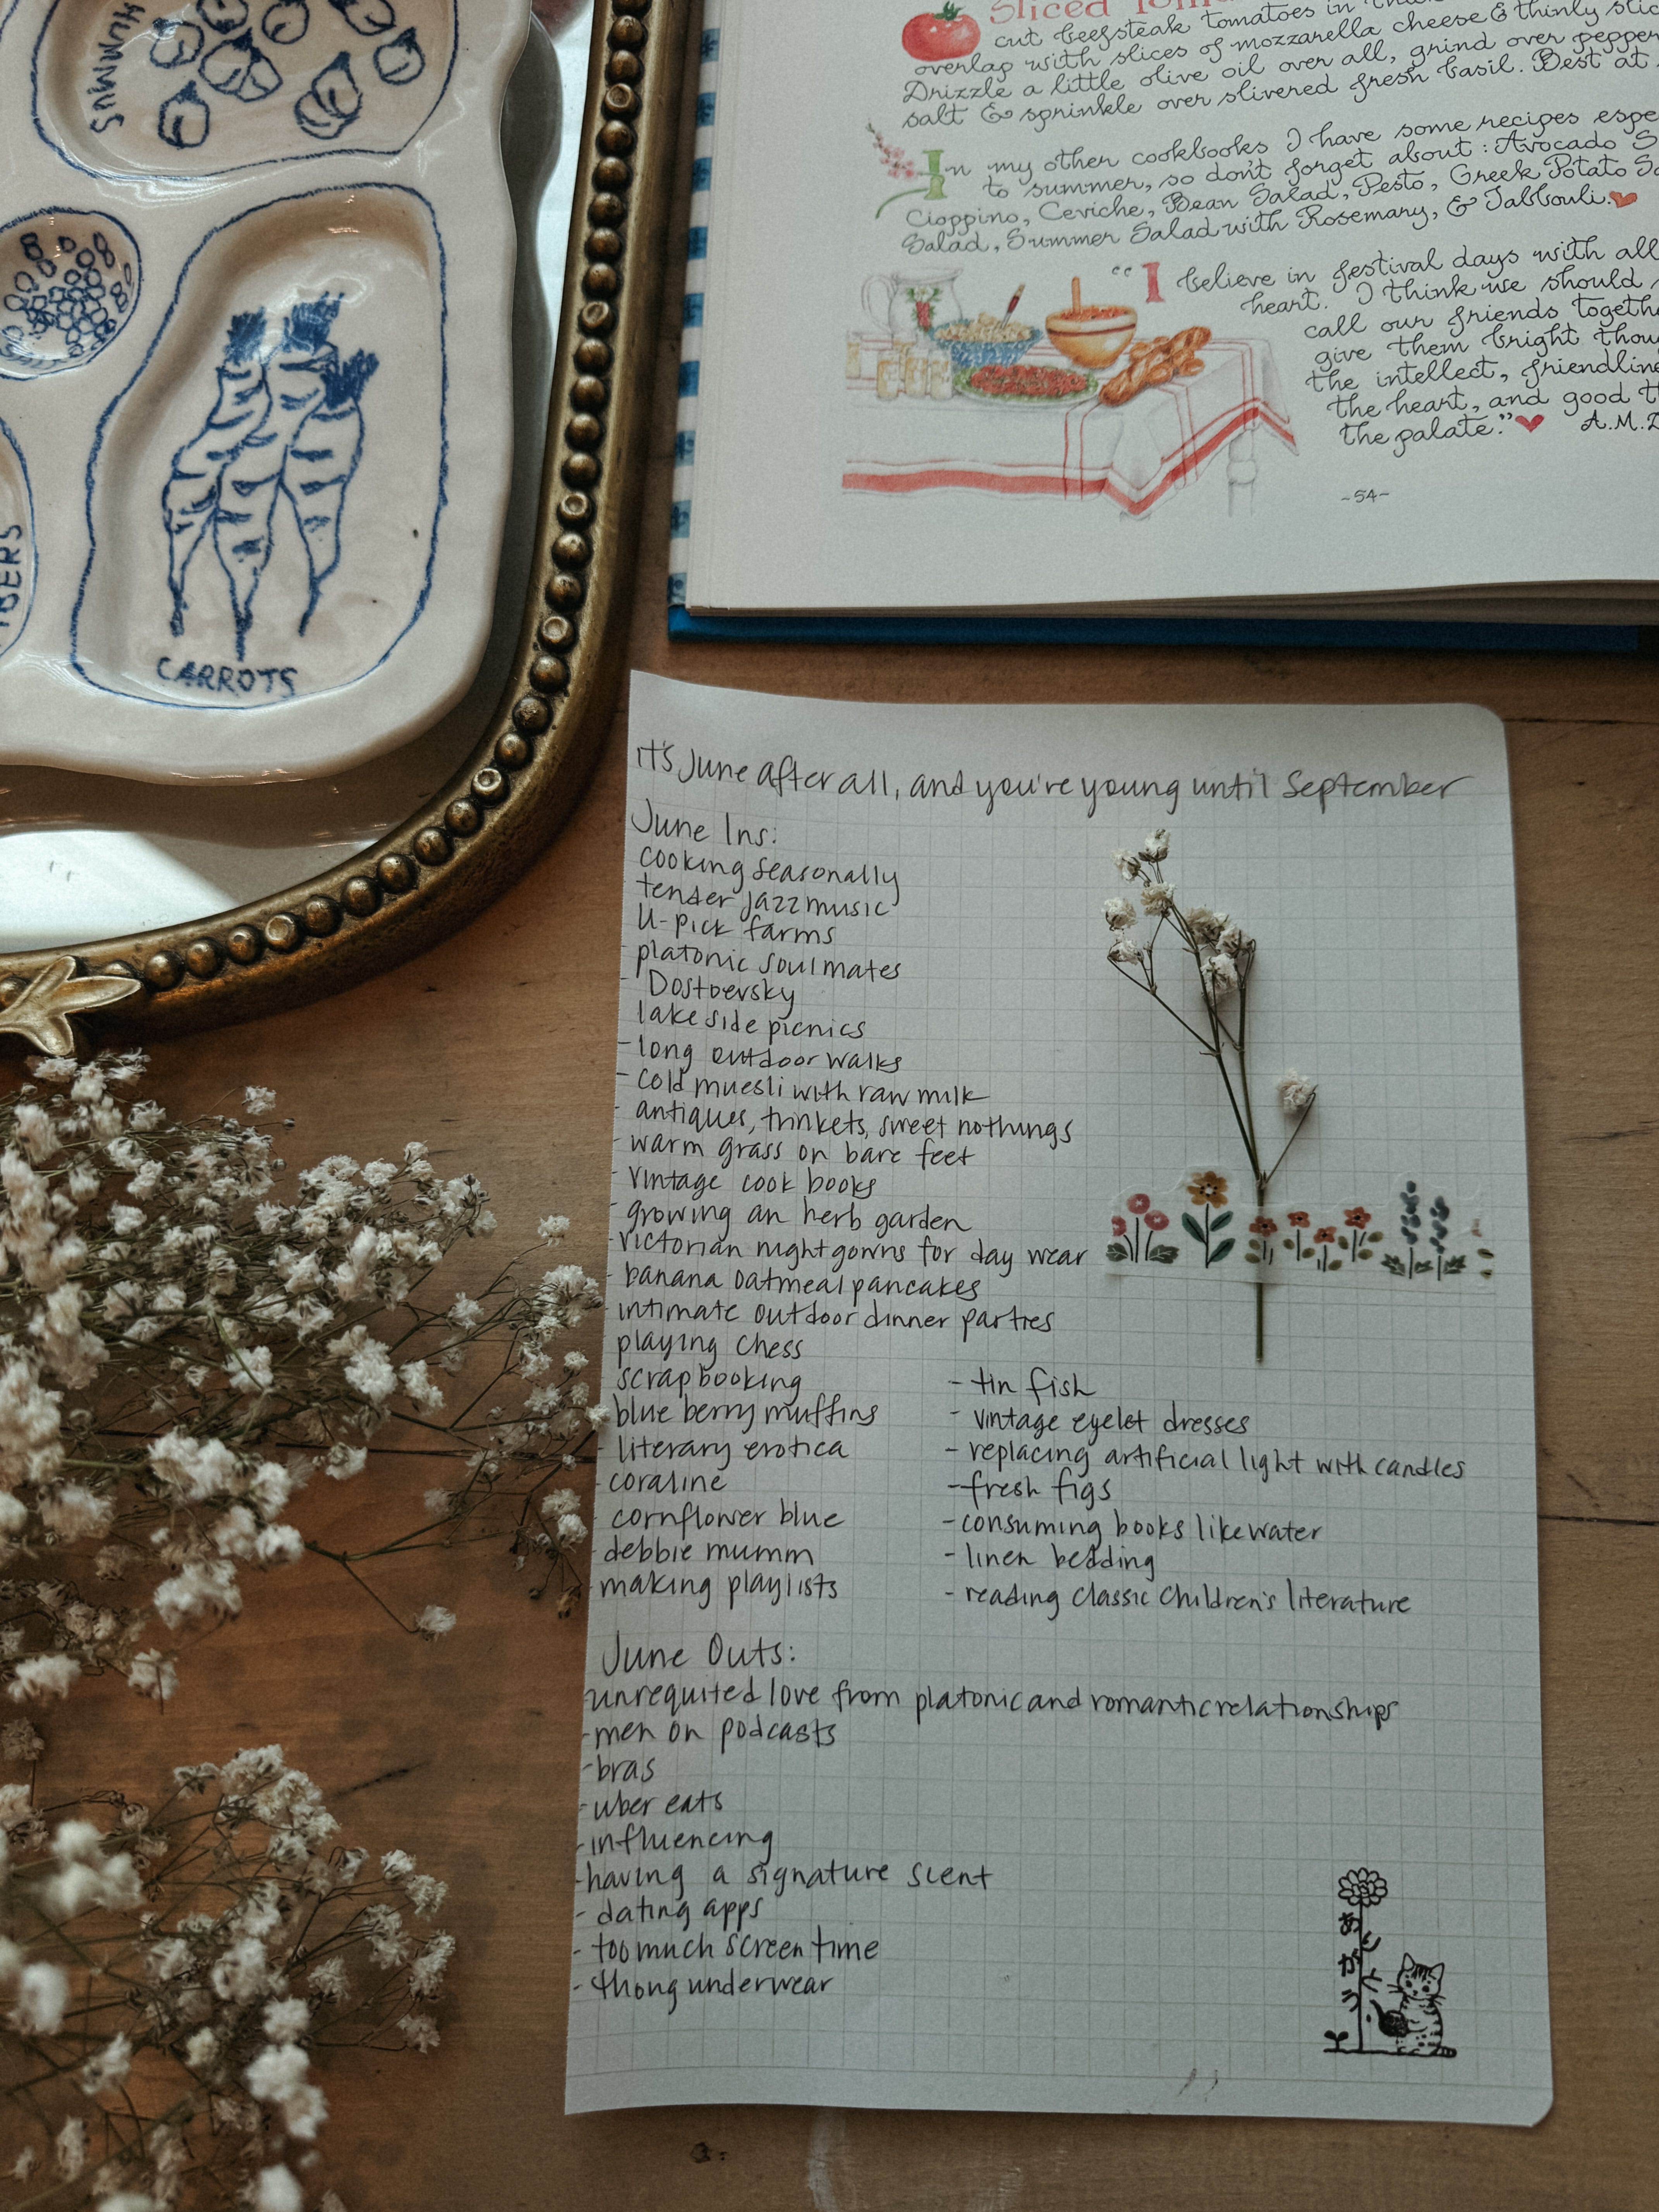 HUMMUS
CARROTS
BERS
Sliced Tom
cut beefsteak tomatoes in thick
overlap with slices of mozzarella cheese & thinly slic
Drizzle a little olive oil over all, grind over pepper
salt & sprinkle over slivered fresh basil. Best at
In my other cookbooks I have some recipes espe
to summer, so don't forget about: Avocado S
Cioppino, Ceviche, Bean Salad, Pesto, Greek Potato Sa
Salad, Summer Salad with Rosemary, & Tabbouli.
"I believe in festival days with all
heart. I think we should
call our friends togethe
give them bright thou
the intellect, friendline
the heart, and good th
the palate." A.M.D
-54-
it's June after all, and you're young until September
June Ins:
cooking seasonally
tender jazz music
U-pick farms
- platonic soulmates
- Dostoevsky
lakeside picnics
- long outdoor walks
- cold muesli with raw milk
- antiques, trinkets, sweet nothings
- warm grass on bare feet
- vintage cook books
- growing an herb garden
- victorian nightgowns for day wear
- banana oatmeal pancakes
- intimate outdoor dinner parties
playing chess
scrapbooking
blueberry muffins
- literary erotica
- coraline
cornflower blue
- debbie mumm
- making playlists
- tin fish
- vintage eyelet dresses
- replacing artificial light with candles
- fresh figs
- consuming books like water
- linen bedding
- reading classic children's literature
June Outs:
- unrequited love from platonic and romantic relationships
- men on podcasts
- bras
- uber eats
- influencing
- having a signature scent
- dating apps
- too much screen time
- thong underwear
ありがとう